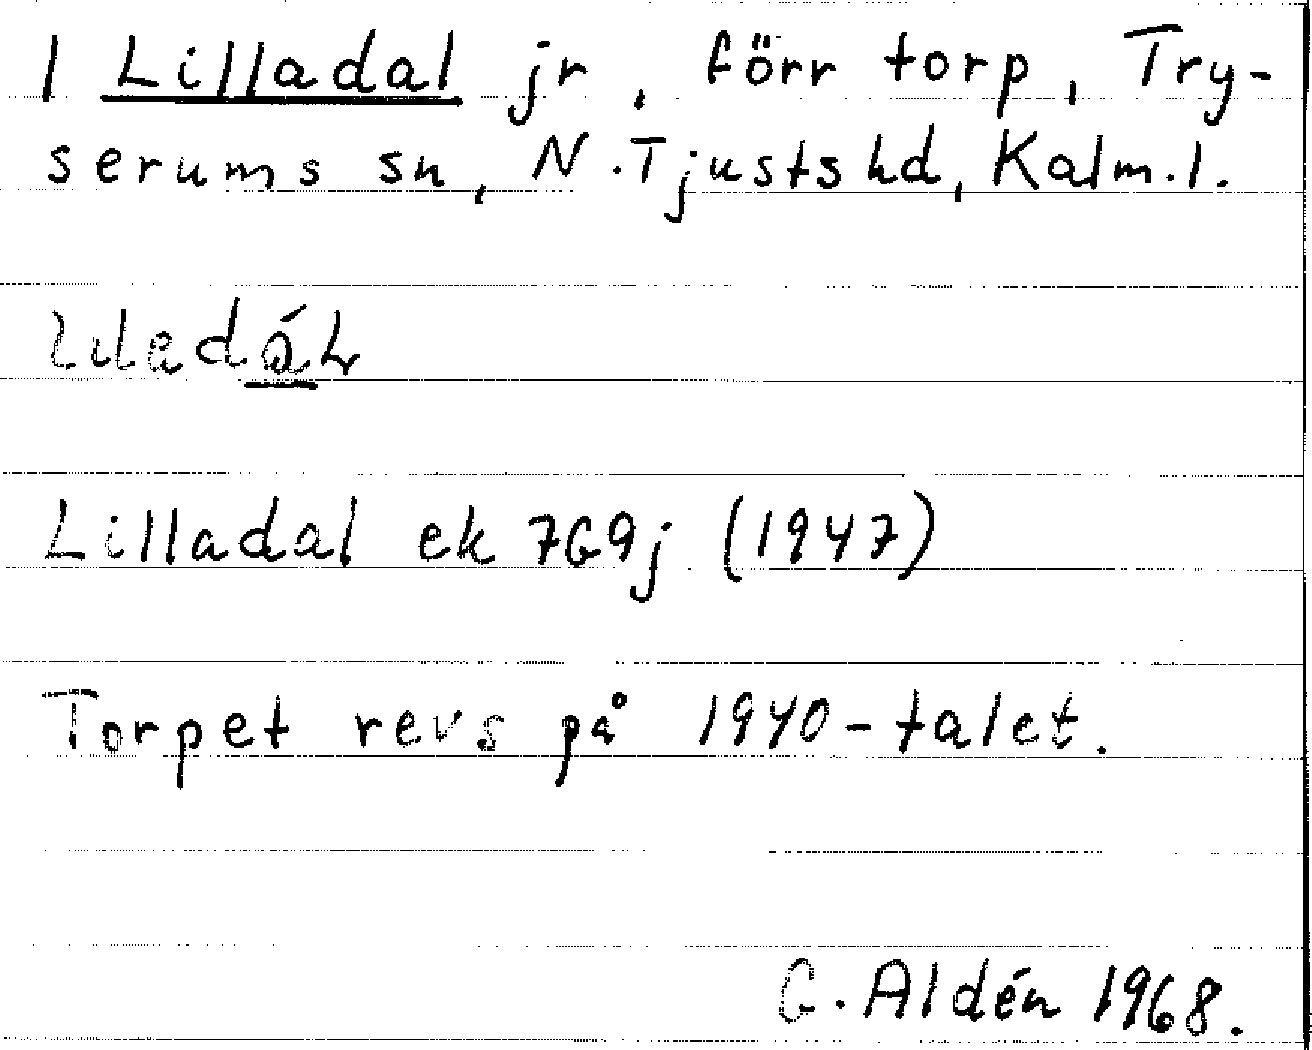 1 Lilladal jr, förr torp, Try-
serums sn, N.Tjusts hd, Kalm.l.
Lilladal ek 7G9j (1947)
Torpet revs på 1940-talet.
G. Aldén 1968.